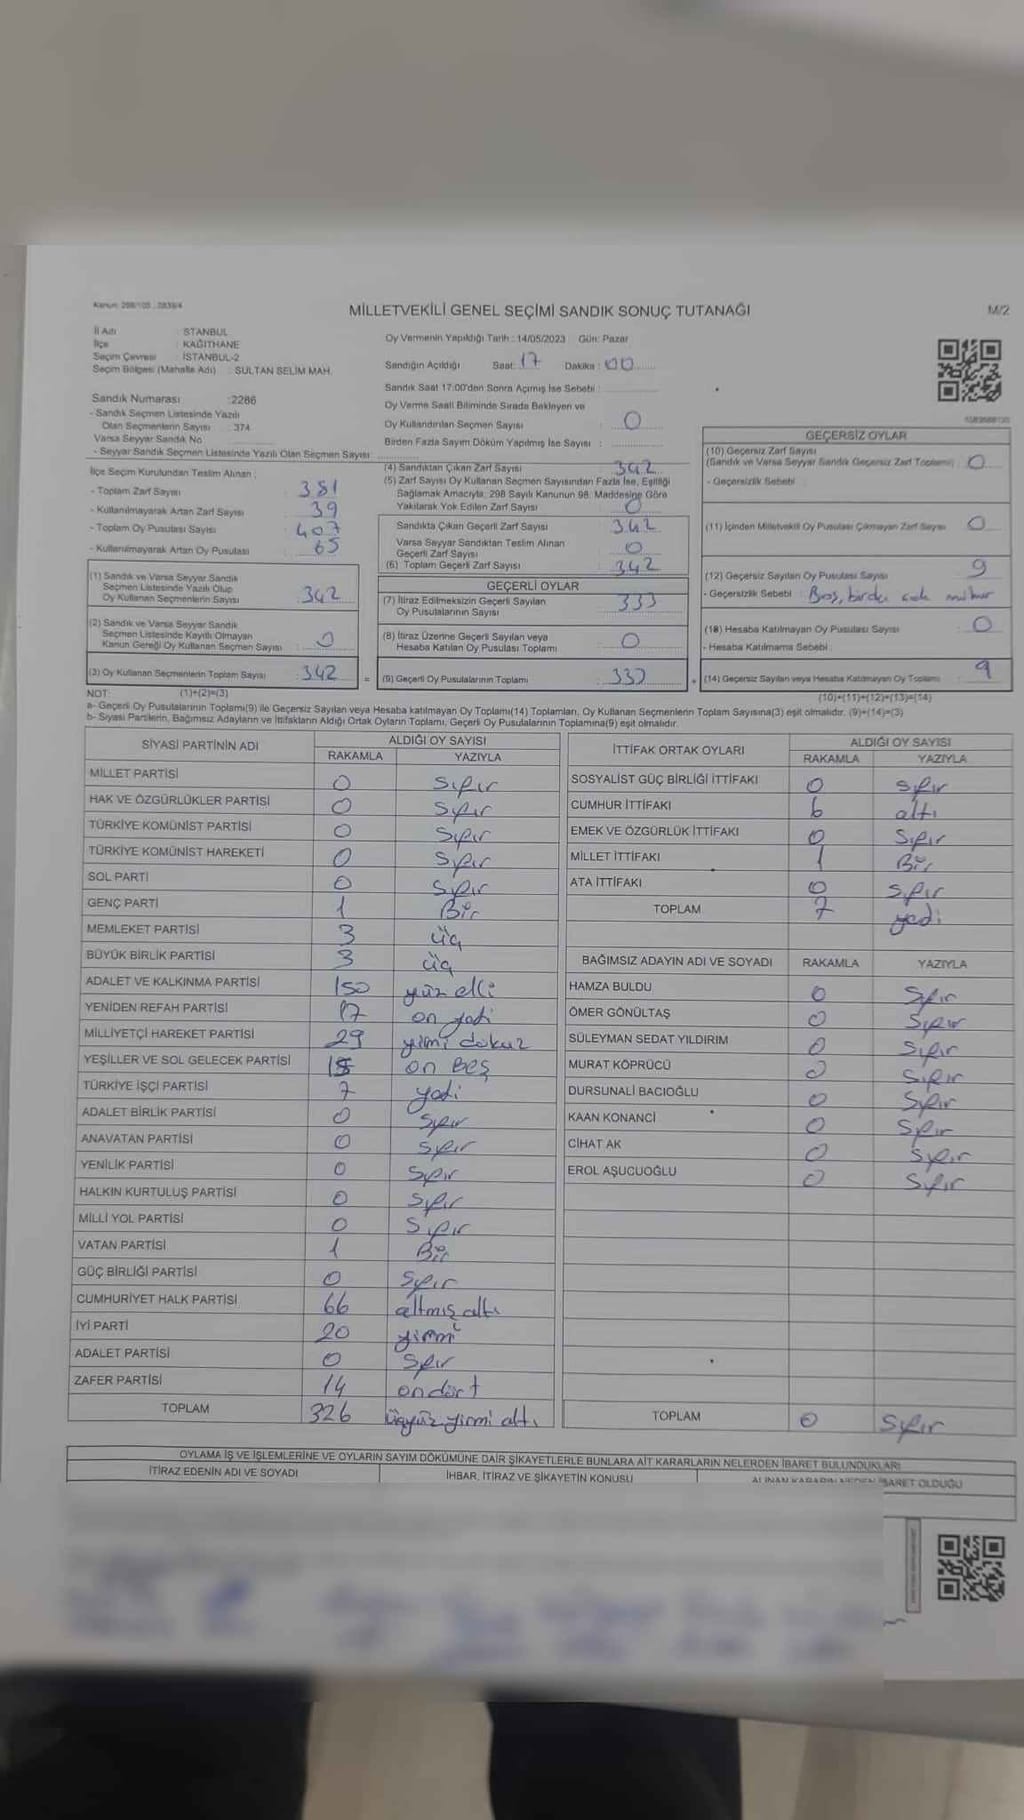 MİLLETVEKİLİ GENEL SEÇİMİ SANDIK SONUÇ TUTANAĞI
M/2
İl Adı : STANBUL
İlçe : KAĞITHANE
Seçim Çevresi : İSTANBUL-2
Seçim Bölgesi (Mahalle Adı) : SULTAN SELİM MAH.
Oy Vermenin Yapıldığı Tarih : 14/05/2023 Gün: Pazar
Sandığın Açıldığı Saat: 17 Dakika : 00
Sandık Saat 17:00'den Sonra Açılmış İse Sebebi :
Oy Verme Saati Bitiminde Sırada Bekleyen ve
Oy Kullandırılan Seçmen Sayısı : 0
Birden Fazla Sayım Döküm Yapılmış İse Sayısı :
Sandık Numarası :2286
- Sandık Seçmen Listesinde Yazılı
Olan Seçmenlerin Sayısı : 374
Varsa Seyyar Sandık No
- Seyyar Sandık Seçmen Listesinde Yazılı Olan Seçmen Sayısı:
İlçe Seçim Kurulundan Teslim Alınan :
- Toplam Zarf Sayısı : 381
- Kullanılmayarak Artan Zarf Sayısı : 39
- Toplam Oy Pusulası Sayısı : 407
- Kullanılmayarak Artan Oy Pusulası : 65
(1) Sandık ve Varsa Seyyar Sandık
Seçmen Listesinde Yazılı Olup
Oy Kullanan Seçmenlerin Sayısı : 342
(2) Sandık ve Varsa Seyyar Sandık
Seçmen Listesinde Kayıtlı Olmayan
Kanun Gereği Oy Kullanan Seçmen Sayısı : 0
(3) Oy Kullanan Seçmenlerin Toplam Sayısı : 342 =
(4) Sandıktan Çıkan Zarf Sayısı : 342
(5) Zarf Sayısı Oy Kullanan Seçmen Sayısından Fazla İse, Eşitliği
Sağlamak Amacıyla, 298 Sayılı Kanunun 98. Maddesine Göre
Yakılarak Yok Edilen Zarf Sayısı : 0
Sandıkta Çıkan Geçerli Zarf Sayısı : 342
Varsa Seyyar Sandıktan Teslim Alınan
Geçerli Zarf Sayısı : 0
(6) Toplam Geçerli Zarf Sayısı : 342
GEÇERLİ OYLAR
(7) İtiraz Edilmeksizin Geçerli Sayılan
Oy Pusulalarının Sayısı : 333
(8) İtiraz Üzerine Geçerli Sayılan veya
Hesaba Katılan Oy Pusulası Toplamı : 0
(9) Geçerli Oy Pusulalarının Toplamı : 333 +
GEÇERSİZ OYLAR
(10) Geçersiz Zarf Sayısı
(Sandık ve Varsa Seyyar Sandık Geçersiz Zarf Toplamı) : 0
- Geçersizlik Sebebi :
(11) İçinden Milletvekili Oy Pusulası Çıkmayan Zarf Sayısı : 0
(12) Geçersiz Sayılan Oy Pusulası Sayısı : 9
- Geçersizlik Sebebi : Boş, birden çok mühür
Hesaba Katılmayan Oy Pusulası Sayısı : 0
- Hesaba Katılmama Sebebi :
(14) Geçersiz Sayılan veya Hesaba Katılmayan Oy Toplamı : 9
NOT: (1)+(2)=(3)
(10)+(11)+(12)+(13)=(14)
a- Geçerli Oy Pusulalarının Toplamı(9) ile Geçersiz Sayılan veya Hesaba Katılmayan Oy Toplamı(14) Toplamları, Oy Kullanan Seçmenlerin Toplam Sayısına(3) eşit olmalıdır. (9)+(14)=(3)
b- Siyasi Partilerin, Bağımsız Adayların ve İttifakların Aldığı Ortak Oyların Toplamı, Geçerli Oy Pusulalarının Toplamına(9) eşit olmalıdır.
SİYASİ PARTİNİN ADI ALDIĞI OY SAYISI
RAKAMLA YAZIYLA
MİLLET PARTİSİ 0 Sıfır
HAK VE ÖZGÜRLÜKLER PARTİSİ 0 Sıfır
TÜRKİYE KOMÜNİST PARTİSİ 0 Sıfır
TÜRKİYE KOMÜNİST HAREKETİ 0 Sıfır
SOL PARTİ 0 Sıfır
GENÇ PARTİ 1 Bir
MEMLEKET PARTİSİ 3 üç
BÜYÜK BİRLİK PARTİSİ 3 üç
ADALET VE KALKINMA PARTİSİ 150 yüz elli
YENİDEN REFAH PARTİSİ 17 on yedi
MİLLİYETÇİ HAREKET PARTİSİ 29 yirmi dokuz
YEŞİLLER VE SOL GELECEK PARTİSİ 15 on Beş
TÜRKİYE İŞÇİ PARTİSİ 7 yedi
ADALET BİRLİK PARTİSİ 0 Sıfır
ANAVATAN PARTİSİ 0 Sıfır
YENİLİK PARTİSİ 0 Sıfır
HALKIN KURTULUŞ PARTİSİ 0 Sıfır
MİLLİ YOL PARTİSİ 0 Sıfır
VATAN PARTİSİ 1 Bir
GÜÇ BİRLİĞİ PARTİSİ 0 Sıfır
CUMHURİYET HALK PARTİSİ 66 altmış altı
İYİ PARTİ 20 yirmi
ADALET PARTİSİ 0 Sıfır
ZAFER PARTİSİ 14 ondört
TOPLAM 326 üçyüz yirmi altı
İTTİFAK ORTAK OYLARI ALDIĞI OY SAYISI
RAKAMLA YAZIYLA
SOSYALİST GÜÇ BİRLİĞİ İTTİFAKI 0 Sıfır
CUMHUR İTTİFAKI 6 altı
EMEK VE ÖZGÜRLÜK İTTİFAKI 0 Sıfır
MİLLET İTTİFAKI 1 Bir
ATA İTTİFAKI 0 Sıfır
TOPLAM 7 yedi
BAĞIMSIZ ADAYIN ADI VE SOYADI RAKAMLA YAZIYLA
HAMZA BULDU 0 Sıfır
ÖMER GÖNÜLTAŞ 0 Sıfır
SÜLEYMAN SEDAT YILDIRIM 0 Sıfır
MURAT KÖPRÜCÜ 0 Sıfır
DURSUNALİ BACIOĞLU 0 Sıfır
KAAN KONANCİ 0 Sıfır
CİHAT AK 0 Sıfır
EROL AŞUCUOĞLU 0 Sıfır
TOPLAM 0 Sıfır
OYLAMA İŞ VE İŞLEMLERİNE VE OYLARIN SAYIM DÖKÜMÜNE DAİR ŞİKAYETLERLE BUNLARA AİT KARARLARIN NELERDEN İBARET BULUNDUKLARI
İTİRAZ EDENİN ADI VE SOYADI İHBAR, İTİRAZ VE ŞİKAYETİN KONUSU ALINAN KARARIN NEDEN İBARET OLDUĞU